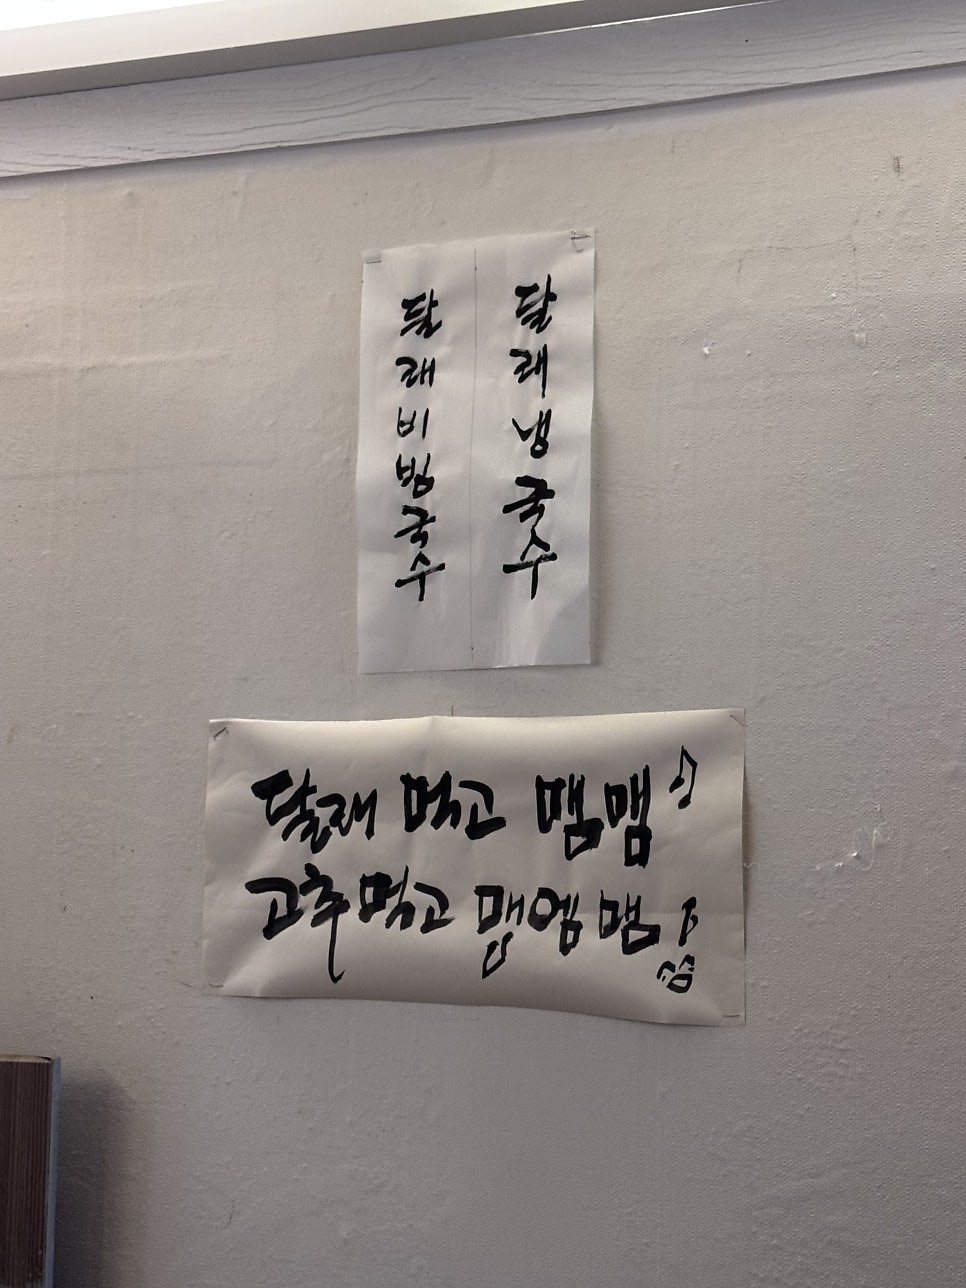 달래비빔국수
달래냉국수
달래 먹고 맴맴
고추 먹고 맹엠맴